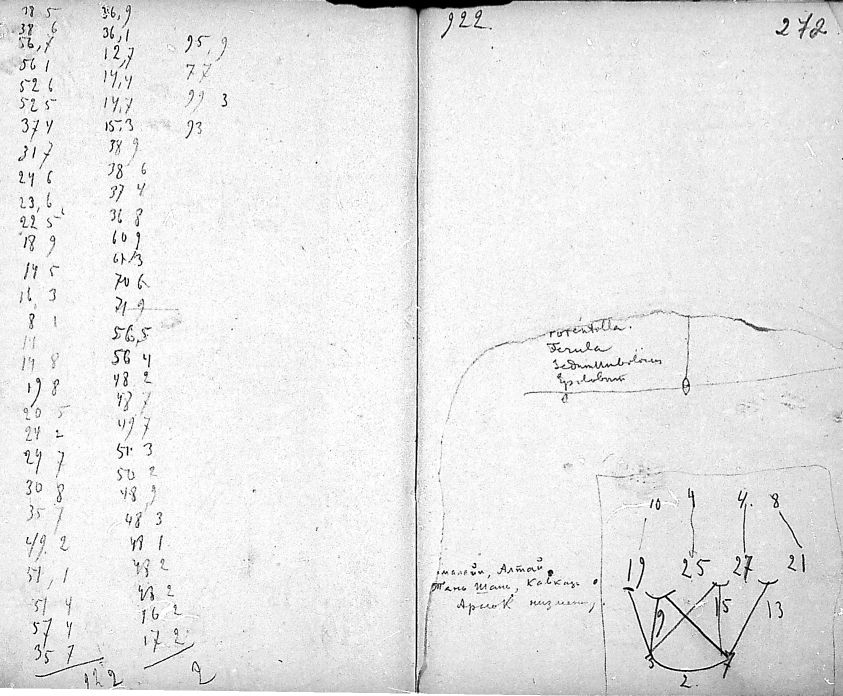 38 5
38 6
56,7
56 1
52 6
52 5
37 4
31 7
24 6
23,6
22 5
18 9
14 5
16 3
8 1
11
14 8
19 8
20 5
24 2
24 7
30 8
35 7
49 2
51, 1
51 4
57 4
35 7
922
36,9
36,1
12,7
14,4
14,7
15,3
38 9
38 6
37 4
36 8
60 9
61 3
70 6
71 9
56,5
56 4
48 2
48 7
49 7
51 3
50 2
48 9
48 3
48 1
43 2
43 2
16 2
17 2
2
95, 9
77
99 3
93
922.
272
Ferula
Epilobium
10 4 4. 8
19 25 27 21
9 15 13
3 7
2.
Алтай,
Тань Шань, Кавказ